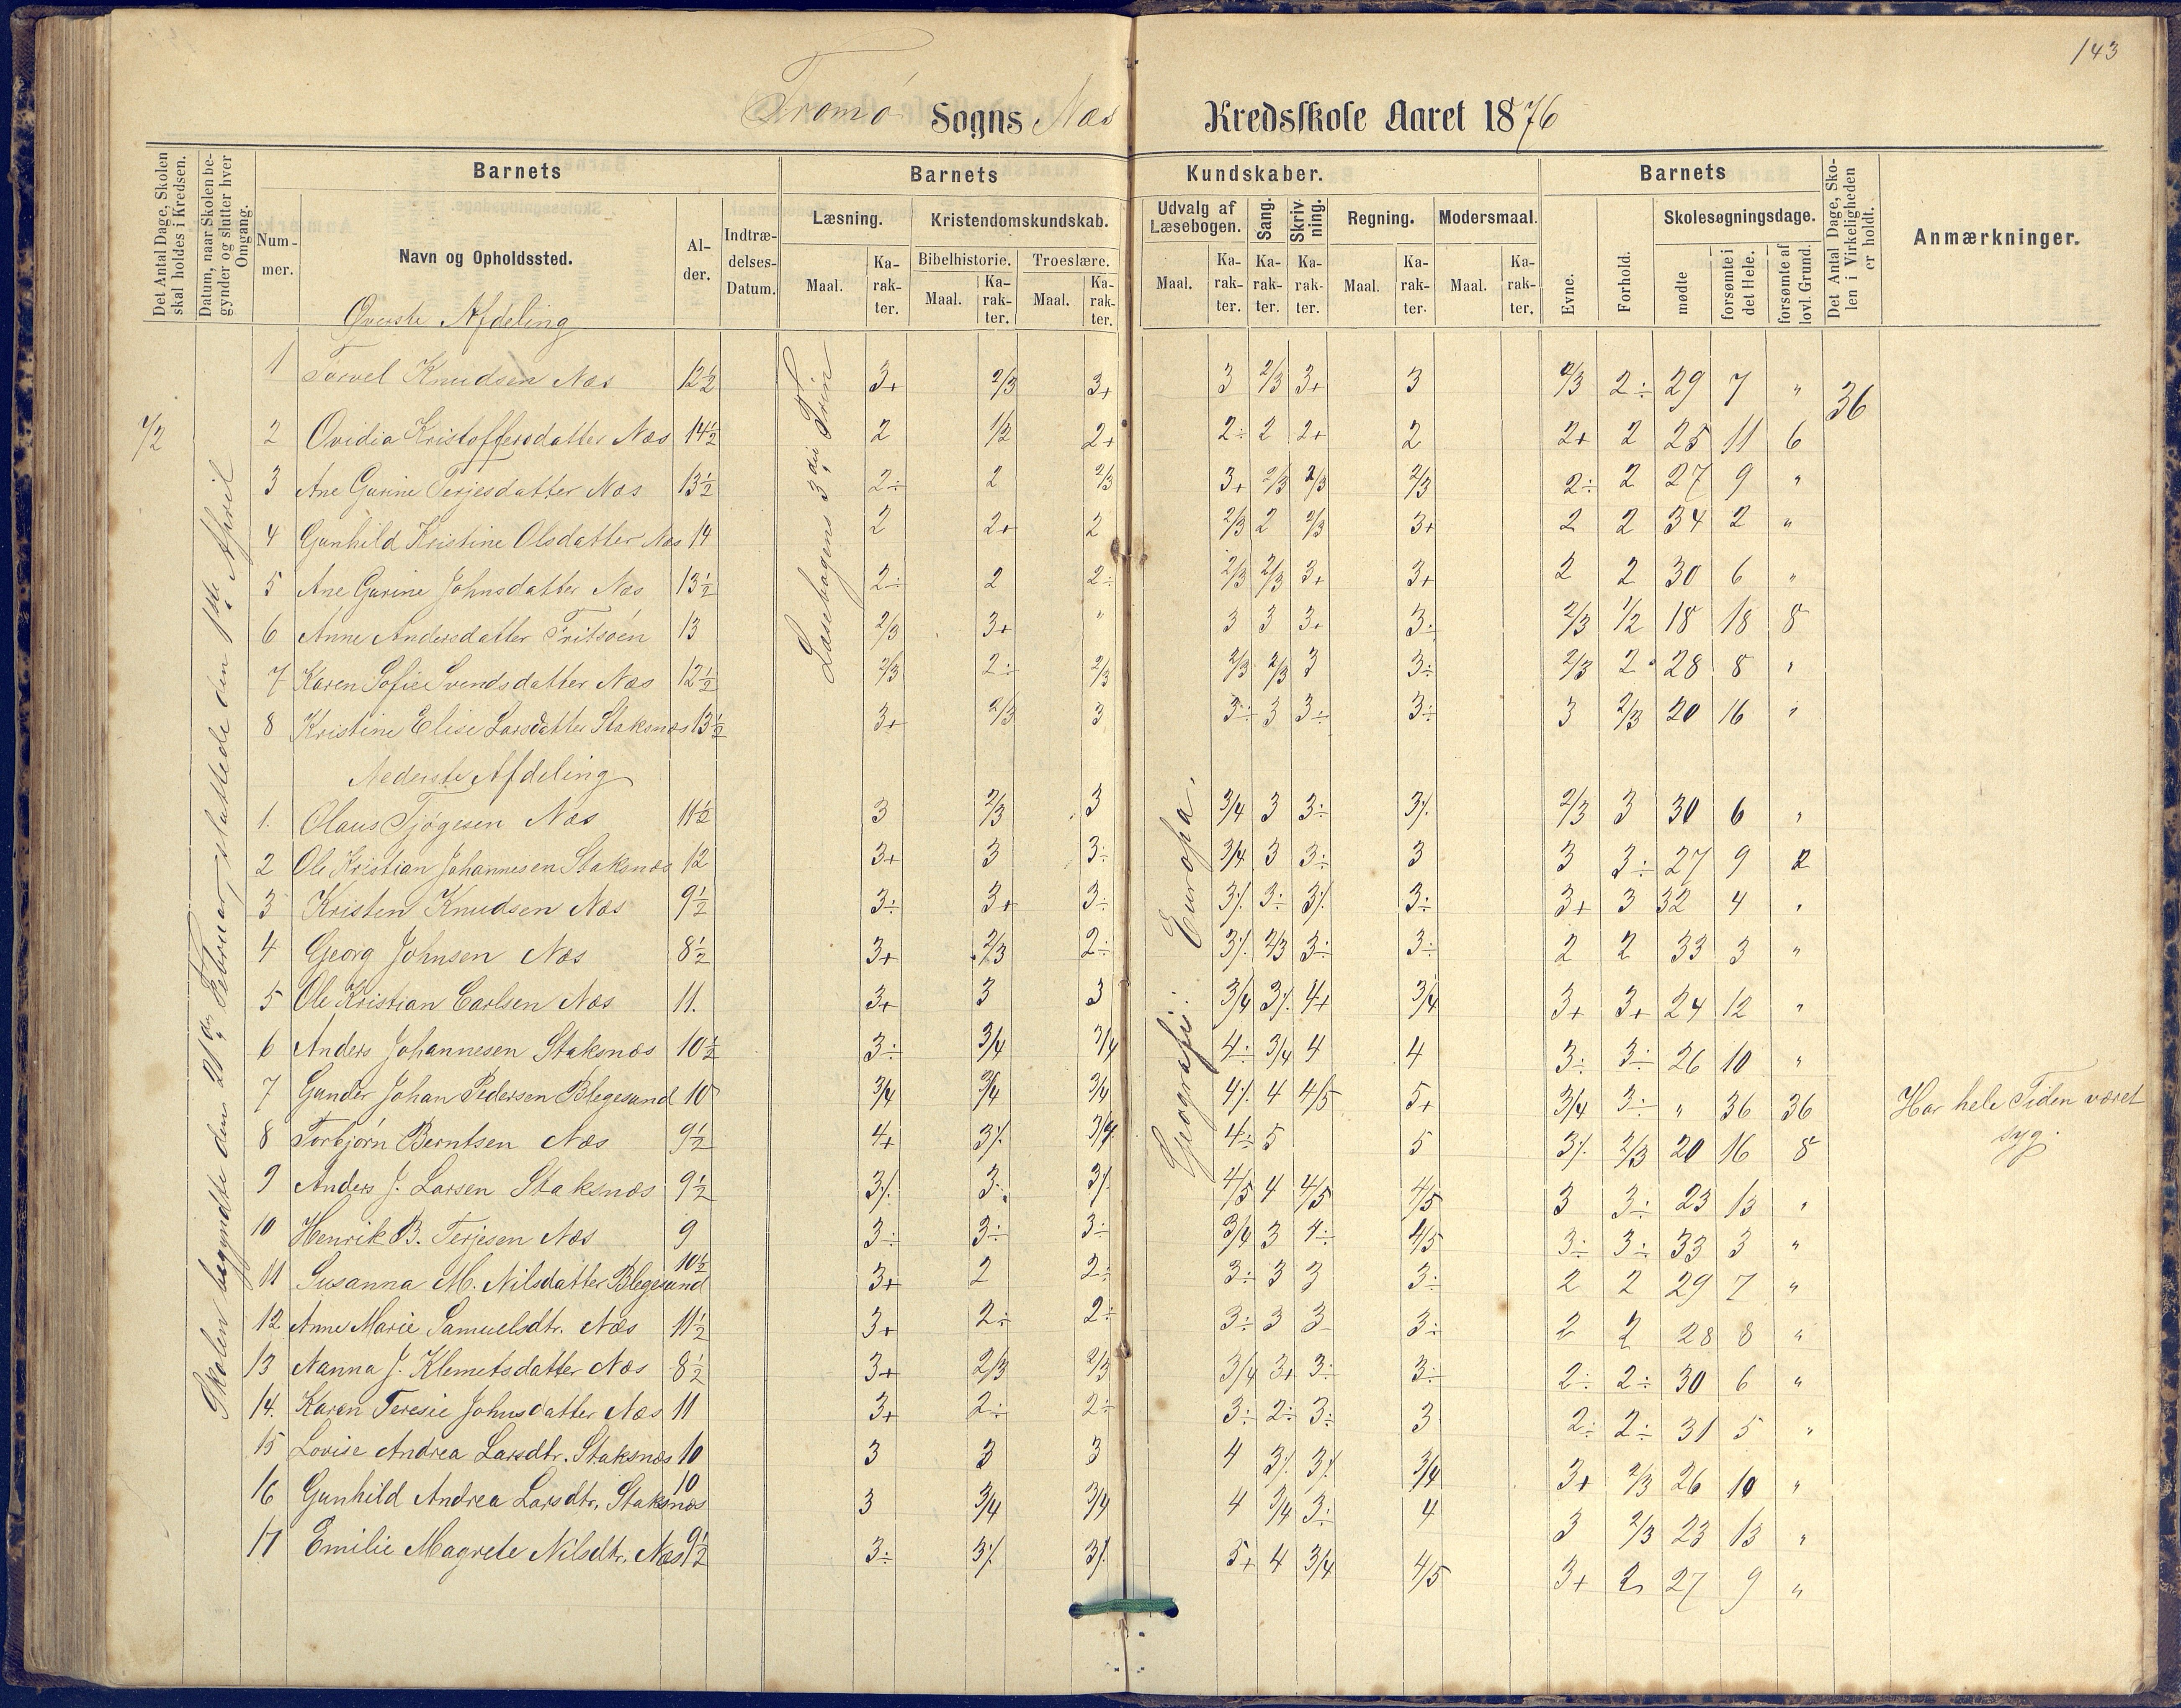 143
Tromø Sogns Næs Kredsskole Aaret 1876
Det Antal Dage, Skolen skal holdes i Kredsen.
Datum, naar Skolen begynder og slutter hver Omgang.
Barnets
Nummer.
Navn og Opholdssted.
Alder.
Indtrædelses-Datum.
Barnets Kundskaber.
Læsning.
Maal. Karakter.
Kristendomskundskab.
Bibelhistorie. Troeslære.
Maal. Karakter. Maal. Karakter.
Udvalg af Læsebogen.
Maal. Karakter.
Sang. Karakter.
Skrivning. Karakter.
Regning.
Maal. Karakter.
Modersmaal.
Maal. Karakter.
Barnets
Evne. Forhold.
Skolesøgningsdage.
mødte forsømte i det Hele. forsømte af lovl. Grund.
Det Antal Dage, Skolen i Virkeligheden er holdt.
Anmærkninger.
Skolen begyndte den 21de Februar, sluttede den 1ste April
Læsebogens 3die Trin
Geografi: Europa.
Øverste Afdeling
1 Torvel Knudsen Næs 12½ 3+ 2/3 3+ 3 2/3 3+ 3 2/3 2÷ 29 7 " 36
2 Ovidia Kristoffersdatter Næs 14½ 2 1/2 2+ 2÷ 2 2+ 2 2+ 2 25 11 6
3 Ane Gurine Terjesdatter Næs 13½ 2÷ 2 2/3 3+ 2/3 2/3 2/3 2÷ 2 27 9 "
4 Gunhild Kristine Olsdatter Næs 14 2 2+ 2 2/3 2 2/3 3+ 2 2 34 2 "
5 Ane Gurine Johnsdatter Næs 13½ 2÷ 2 2÷ 2/3 2/3 3+ 3+ 2 2 30 6 "
6 Anne Andersdatter Fritsøen 13 2/3 3+ " 3 3 3+ 3÷ 2/3 1/2 18 18 8
7 Karen Sofie Svendsdatter Næs 12½ 2/3 2÷ 2/3 2/3 2/3 3 3÷ 2/3 2 28 8 "
8 Kristine Elise Larsdatter Staksnæs 13½ 3+ 2/3 3 3÷ 3 3÷ 3÷ 3 2/3 20 16 "
Nederste Afdeling
1. Olaus Tjøgesen Næs 11½ 3 2/3 3 3/4 3 3÷ 3% 2/3 3 30 6 "
2 Ole Kristian Johannesen Staksnæs 12 3+ 3 3÷ 3/4 3 3÷ 3 3 3÷ 27 9 2
3 Kristen Knudsen Næs 9½ 3÷ 3+ 3÷ 3% 3÷ 3% 3÷ 3+ 3 32 4 "
4 Georg Johnsen Næs 8½ 3+ 2/3 2÷ 3% 2/3 3÷ 3÷ 2 2 33 3 "
5 Ole Kristian Carlsen Næs 11. 3+ 3 3 3/4 3% 4+ 3/4 3+ 3+ 24 12 "
6 Anders Johannesen Staksnæs 10½ 3÷ 3/4 3/4 4÷ 3/4 4 4 3÷ 3÷ 26 10 "
7 Gunder Johan Pedersen Blegesund 10 3/4 3/4 3/4 4% 4 4/5 5+ 3/4 3÷ " 36 36 Har hele Tiden været syg.
8 Torbjørn Berntsen Næs 9½ 4+ 3% 3/4 4÷ 5 5 3% 2/3 20 16 8
9 Anders J. Larsen Staksnæs 9½ 3% 3÷ 3% 4/5 4 4/5 4/5 3 3÷ 23 13 "
10 Henrik B. Terjesen Næs 9 3÷ 3÷ 3÷ 3/4 3 4÷ 4/5 3÷ 3÷ 33 3 "
11 Susanna M. Nilsdatter Blegesund 10½ 3+ 2 2÷ 3÷ 3 3 3÷ 2 2 29 7 "
12 Anne Marie Samuelsdtr. Næs 11½ 3+ 2÷ 2÷ 3÷ 3 3 3÷ 2 2 28 8 "
13 Nanna J. Klemetsdatter Næs 8½ 3+ 2/3 2/3 3/4 3+ 3÷ 3÷ 2÷ 2÷ 30 6 "
14. Karen Teresie Johnsdatter Næs 11 3+ 2÷ 2÷ 3÷ 2÷ 3÷ 3 2÷ 2÷ 31 5 "
15 Lovise Andrea Larsdtr. Staksnæs 10 3 3 3 4 3% 3% 3/4 3+ 2/3 26 10 "
16 Gunhild Andrea Larsdtr. Staksnæs 10 3 3/4 3/4 4 3/4 3÷ 4 3 2/3 23 13 "
17 Emilie Magrete Nilsdtr. Næs 9½ 3÷ 3% 3% 5+ 4 3/4 4/5 3+ 2 27 9 "